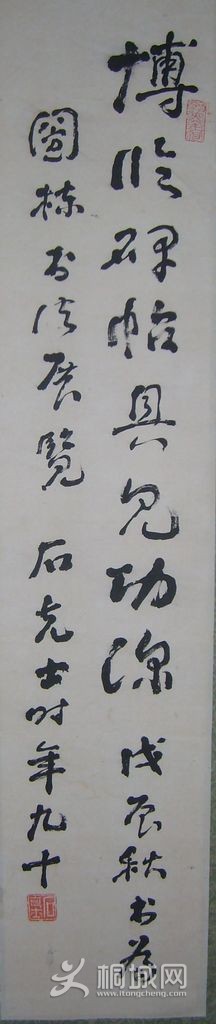 博临碑帖具见功深 戊辰秋书为
图栋书法展览 石克士时年九十
桐城网
www.itongcheng.com